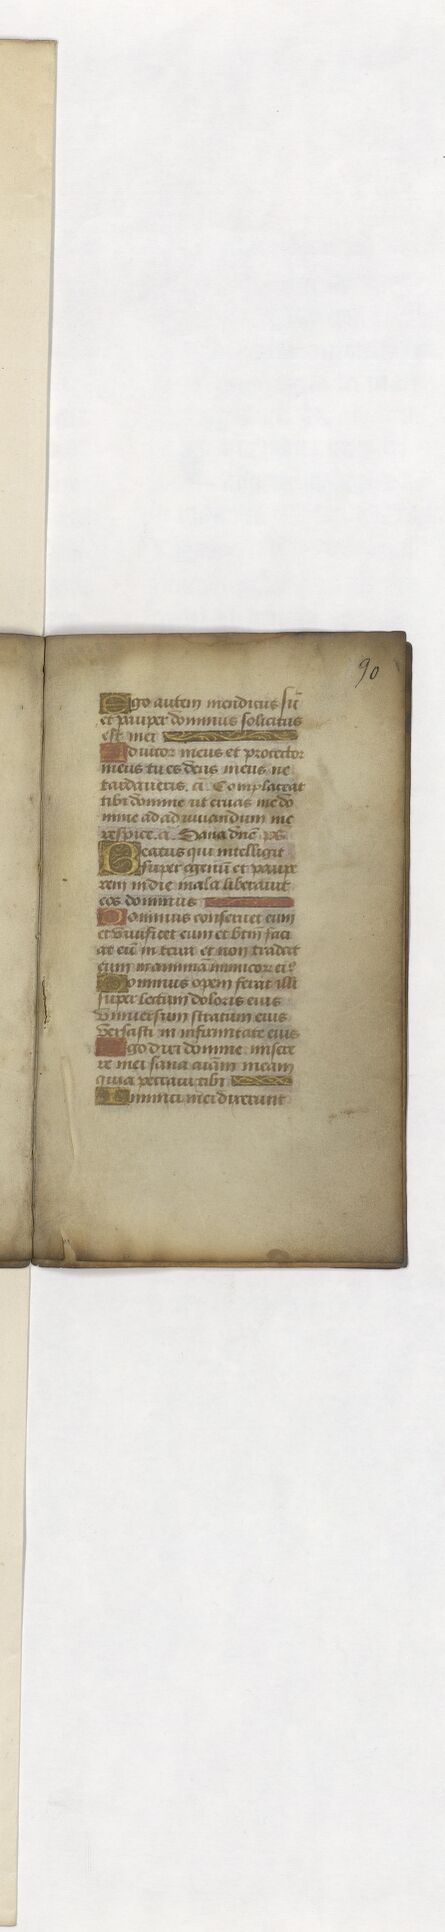 90
Ego autem mendicus sū
et pauper dominus solicitus
est mei
Adiutor meus et protector
meus tu es deus meus ne
tardaueris. a. Complaceat
tibi domine ut eruas me do
mine ad adiuuandum me
respice. a. Sana dn̄e ps
Beatus qui intelligit
super egenū et paupe
rem in die mala liberauit
eos dominus
Dominus conseruet eum
et viuificet eum et btm̄ faci
at eū in terra et non tradat
eum in animā inimicor eiꝰ
Dominus opem ferat illi
super lectum doloris eius
vniuersum stratum eius
versasti in infirmitate eius
Ego dixi domine misere
re mei sana aīam meam
quia peccaui tibi
Inimici mei dixerunt